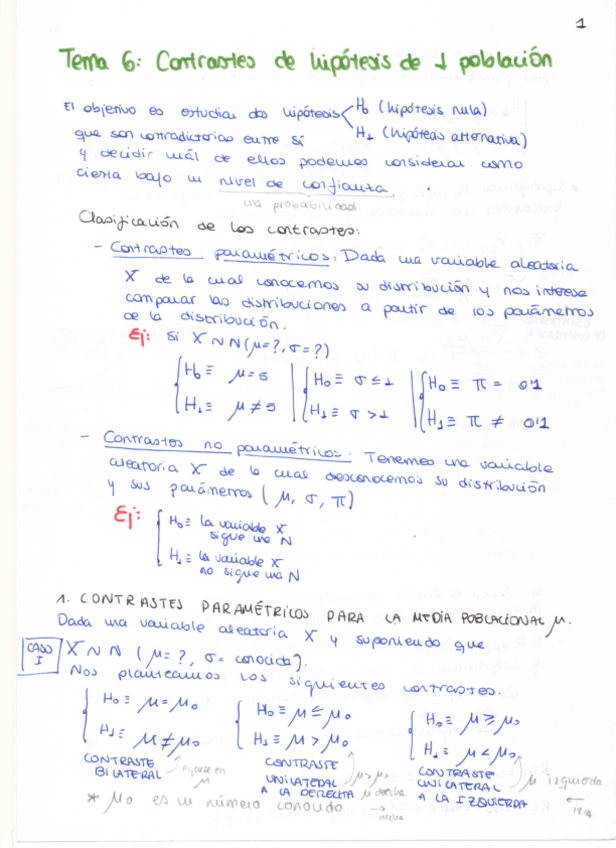 1
Tema 6: Contrastes de hipótesis de 1 población
El objetivo es estudiar dos hipótesis H₀ (hipótesis nula)
que son contradictorias entre sí H₁ (hipótesis alternativa)
y decidir cuál de ellos podemos considerar como
cierta bajo un nivel de confianza.
una probabilidad
Clasificación de los contrastes:
- Contrastes paramétricos: Dada una variable aleatoria
X de la cual conocemos su distribución y nos interesa
comparar las distribuciones a partir de los parámetros
de la distribución.
Ej: Si X ~ N(μ=?, σ=?)
H₀ ≡ μ = 5 H₀ ≡ σ ≤ 1 H₀ ≡ π = 0'1
H₁ ≡ μ ≠ 5 H₁ ≡ σ > 1 H₁ ≡ π ≠ 0'1
- Contrastes no paramétricos: Tenemos una variable
aleatoria X de la cual desconocemos su distribución
y sus parámetros (μ, σ, π)
Ej: H₀ ≡ la variable X
sigue una N
H₁ ≡ la variable X
no sigue una N
1. CONTRASTES PARAMÉTRICOS PARA LA MEDIA POBLACIONAL μ.
Dada una variable aleatoria X y suponiendo que
CASO I X ~ N (μ = ?, σ = conocida).
Nos planteamos los siguientes contrastes.
H₀ ≡ μ = μ₀ H₀ ≡ μ ≤ μ₀ H₀ ≡ μ ≥ μ₀
H₁ ≡ μ ≠ μ₀ H₁ ≡ μ > μ₀ H₁ ≡ μ < μ₀
CONTRASTE BILATERAL fijarse en μ
CONTRASTE UNILATERAL A LA DERECHA μ > μ₀ μ derecha
CONTRASTE UNILATERAL A LA IZQUIERDA μ izquierda
* μ₀ es un número conocido